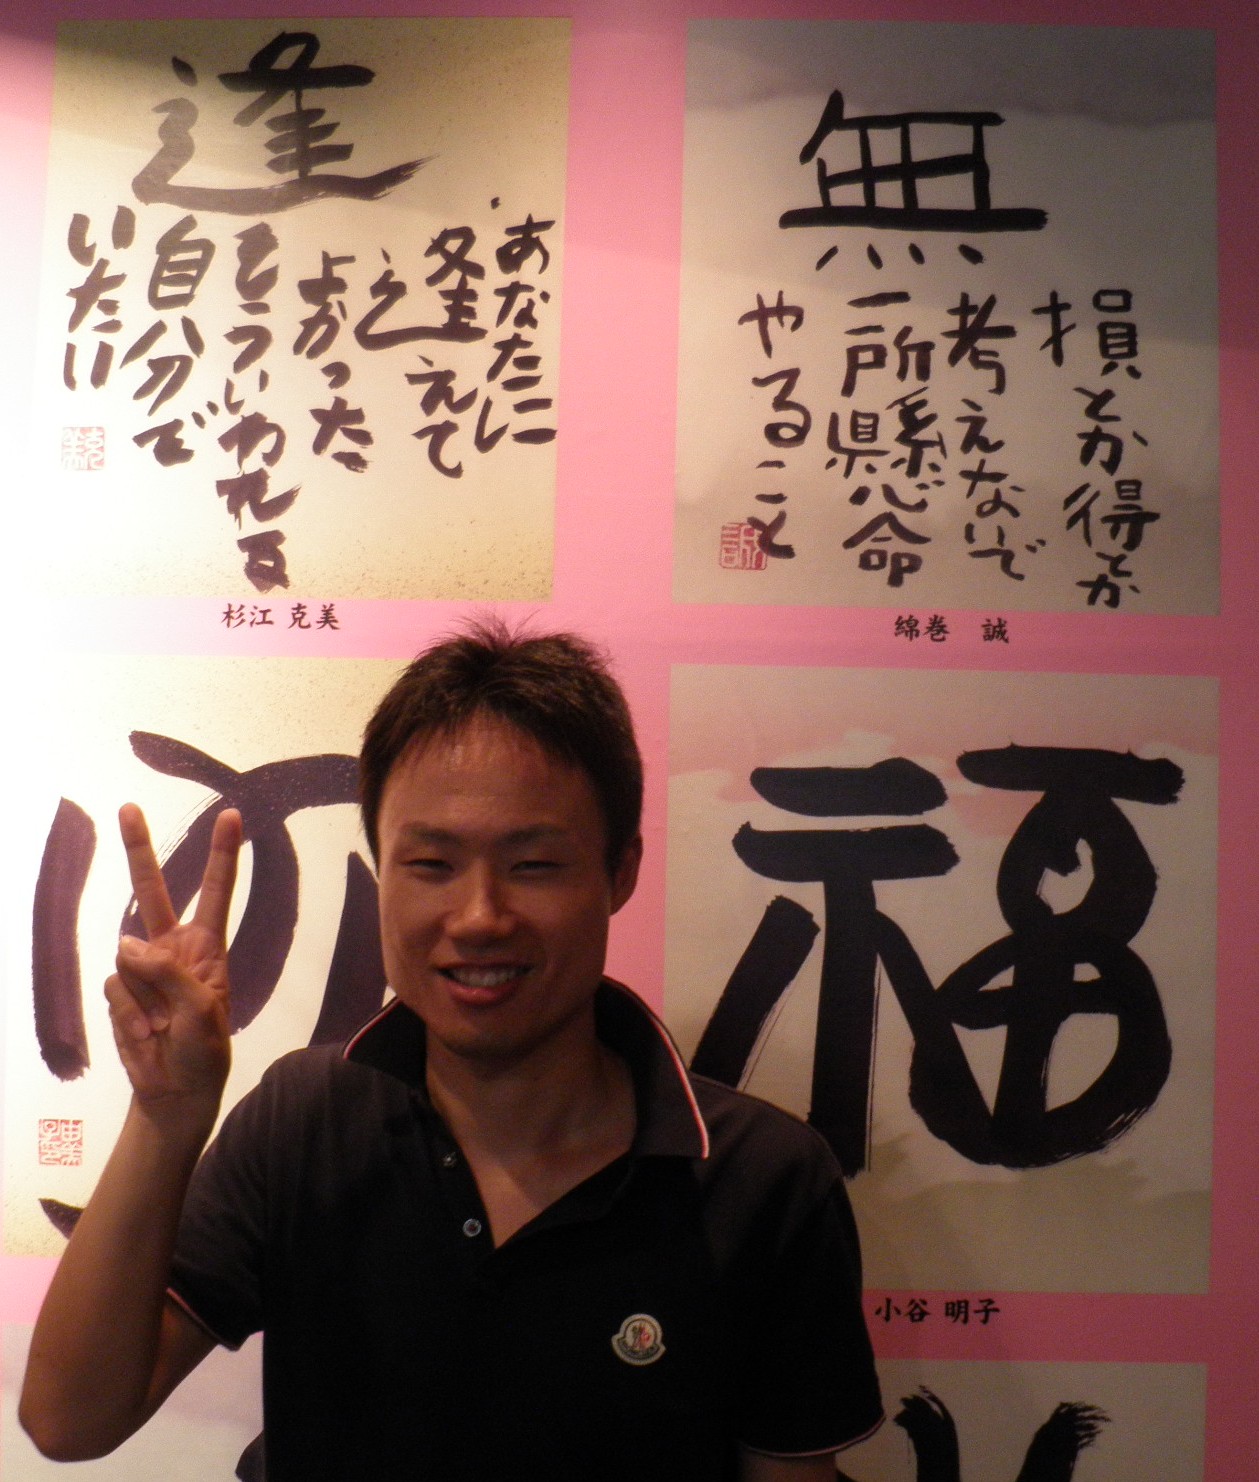 逢
あなたに
逢えて
よかった
そういわれる
自分で
いたい
克美
杉江 克美
無
損とか得とか
考えないで
一所懸命
やること
誠
綿巻 誠
福
小谷 明子